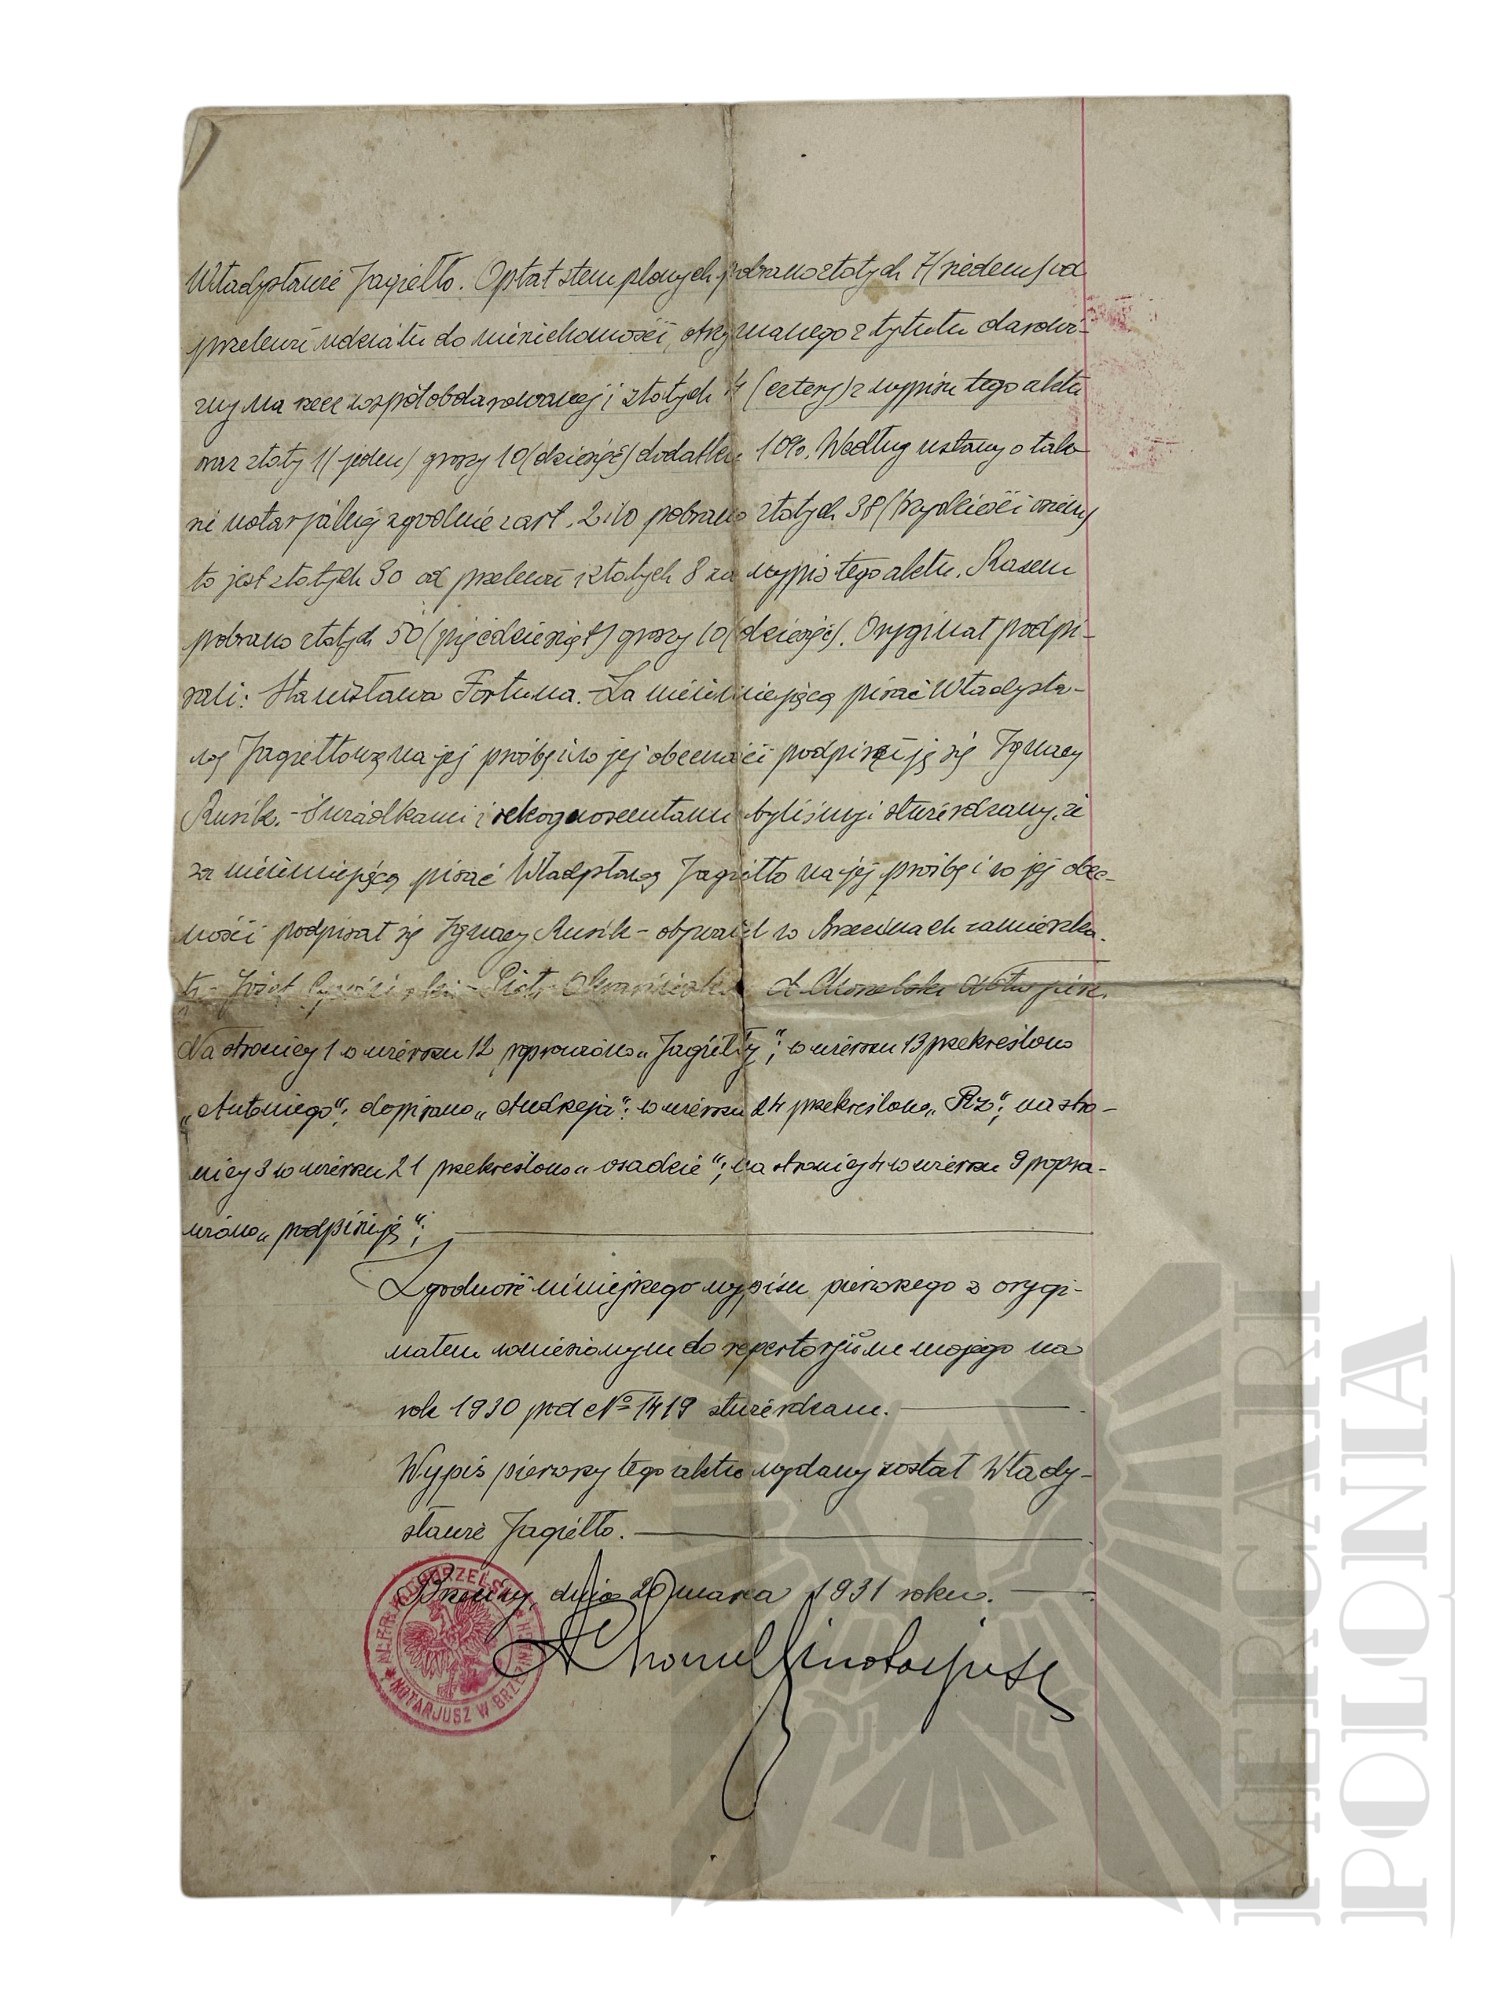 Władysławie Jagiełło. Opłat stemplowych pobrano złotych 7 (siedem) od
przelewu udziału do nieruchomości, otrzymanego z tytułu darowi-
zny na rzecz współobdarowanej i złotych 4 (cztery) z wypisu tego aktu
oraz złoty 1 (jeden) groszy 10 (dziesięć) dodatku 10%. Według ustawy o taks-
ie notarjalnej zgodnie z art. 2 i 10 pobrano złotych 38 (trzydzieści osiem)
to jest złotych 30 od przelewu i złotych 8 za wypis tego aktu. Razem
pobrano złotych 50 (pięćdziesiąt) groszy 10 (dziesięć). Oryginał podpi-
sali: Stanisława Fortuna. - Za nieumiejącą pisać Władysła-
wę Jagiełłową na jej prośbę i w jej obecności podpisuję się Ignacy
Rusik. - Świadkami i rekognoscentami byliśmy i stwierdzamy, że
za nieumiejącą pisać Władysławę Jagiełło na jej prośbę i w jej obec-
ności podpisał się Ignacy Rusik - obywatel w Brzezinach zamieszka-
ły - Józef - Piotr notarjusz.
Na stronicy 1 w wierszu 12 poprawiono „Jagiełły"; w wierszu 13 przekreślono
„Antoniego"; dopisano „Andrzeja"; w wierszu 24 przekreślono „Rz"; na stro-
nicy 3 w wierszu 21 przekreślono „osadzie"; na stronicy 4 w wierszu 9 popra-
wiono „podpisuję";
Zgodność niniejszego wypisu pierwszego z orygi-
nałem wniesionym do repertorjum mojego na
rok 1930 pod No 1419 stwierdzam.
Wypis pierwszy tego aktu wydany został Włady-
sławie Jagiełło.
Brzeziny, dnia 20 marca 1931 roku.
notarjusz
NOTARJUSZ W BRZEZINACH
MERCARI
POLONIA